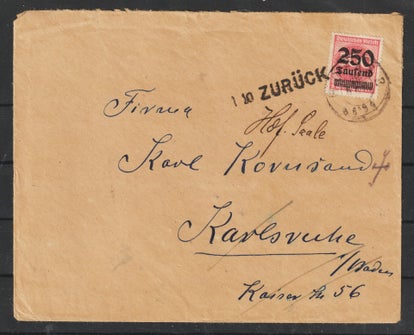 Deutsches Reich
250
Tausend
ZURÜCK
Firma
Karl Kornsand
Karlsruhe
i/Baden
Kaiser Str 56